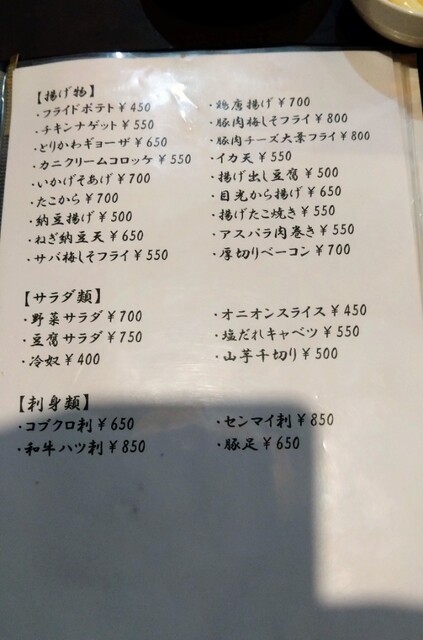 【揚げ物】
・フライドポテト¥450
・チキンナゲット¥550
・とりかわギョーザ¥650
・カニクリームコロッケ¥550
・いかげそあげ¥700
・たこから¥700
・納豆揚げ¥500
・ねぎ納豆天¥650
・サバ梅しそフライ¥550
・鶏唐揚げ¥700
・豚肉梅しそフライ¥800
・豚肉チーズ大葉フライ¥800
・イカ天¥550
・揚げ出し豆腐¥500
・目光から揚げ¥650
・揚げたこ焼き¥550
・アスパラ肉巻き¥550
・厚切りベーコン¥700
【サラダ類】
・野菜サラダ¥700
・豆腐サラダ¥750
・冷奴¥400
・オニオンスライス¥450
・塩だれキャベツ¥550
・山芋千切り¥500
【刺身類】
・コブクロ刺¥650
・和牛ハツ刺¥850
・センマイ刺¥850
・豚足¥650